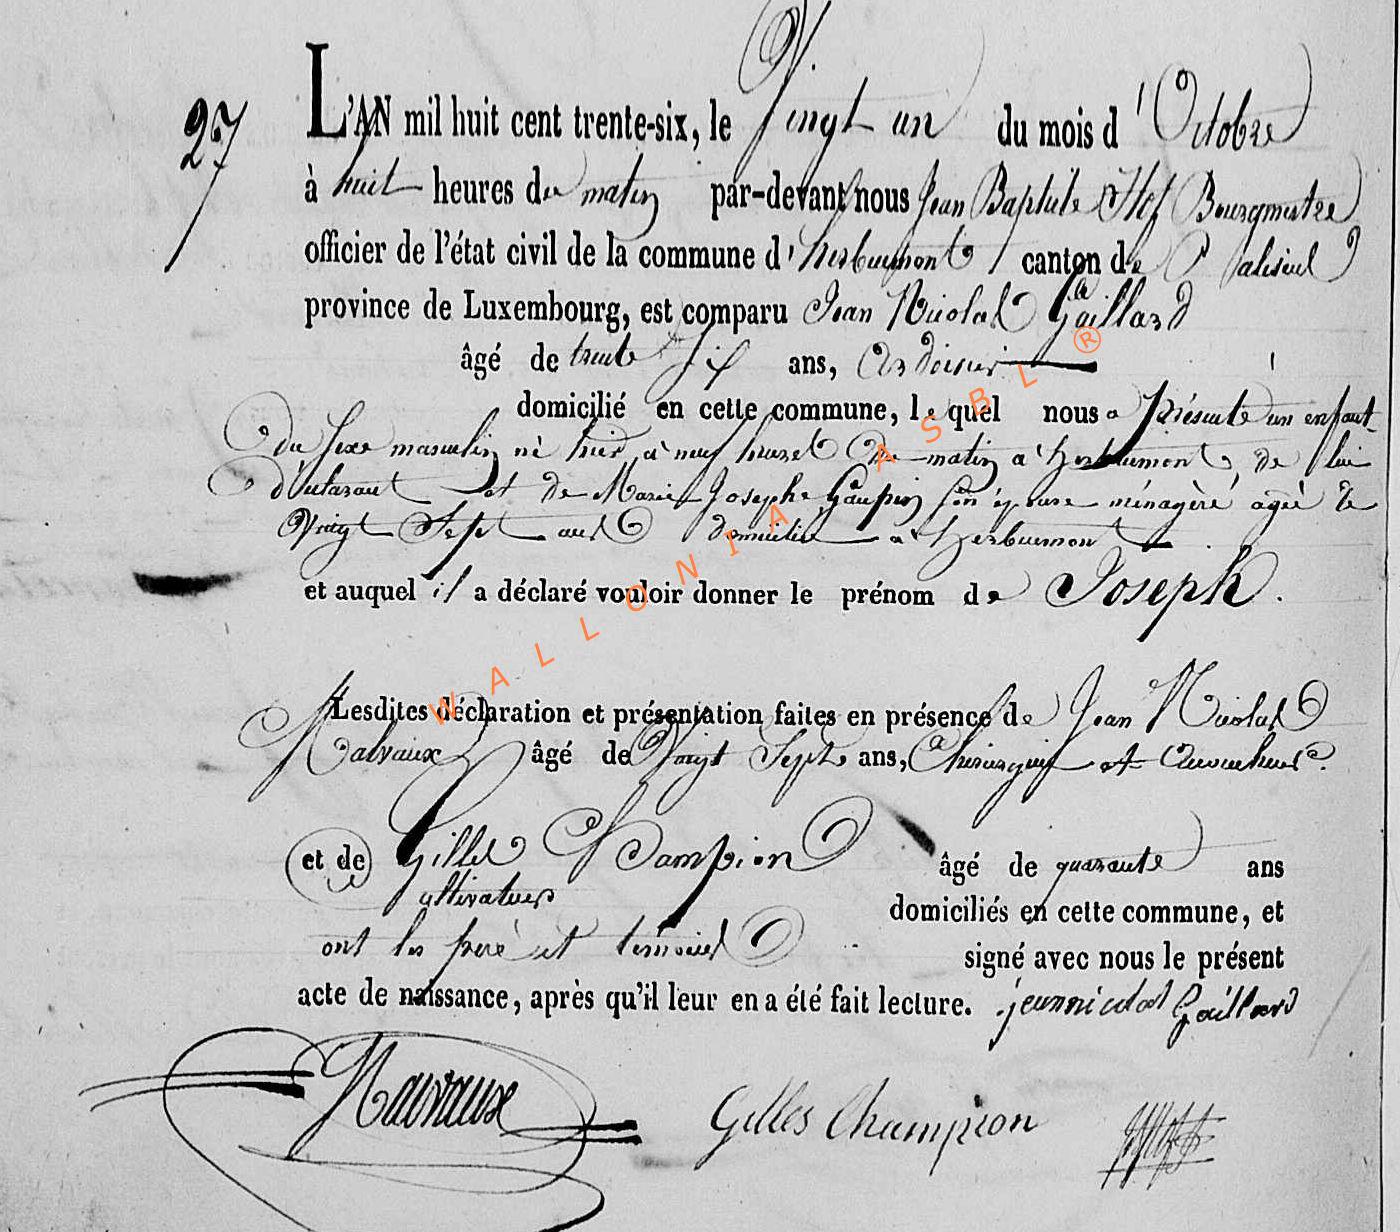 27
L'AN mil huit cent trente-six, le Vingt un du mois d'Octobre
à huit heures du matin par-devant nous Jean Baptiste Bourgmestre
officier de l'état civil de la commune d'herbeumont canton de Paliseul
province de Luxembourg, est comparu Jean Nicolas Gaillard
âgé de trente Six ans, Ardoisier
domicilié en cette commune, lequel nous a présenté un enfant
du sexe masculin né hier à neuf heures du matin à herbeumont de lui
déclarant et de Marie Josephe Gaupin son épouse ménagère agée de
Vingt Sept ans domiciliée à herbeumont
et auquel il a déclaré vouloir donner le prénom de Joseph.
Lesdites déclaration et présentation faites en présence de Jean Nicolas
Malvaux âgé de Vingt Sept ans, Chirurgien et Accoucheur.
et de Gilles Champion âgé de quarante ans
cultivateur
domiciliés en cette commune, et
ont les père et témoins signé avec nous le présent
acte de naissance, après qu'il leur en a été fait lecture. jean nicolas Gaillard
Malvaux Gilles Champion
WALLONIA ASBL ®